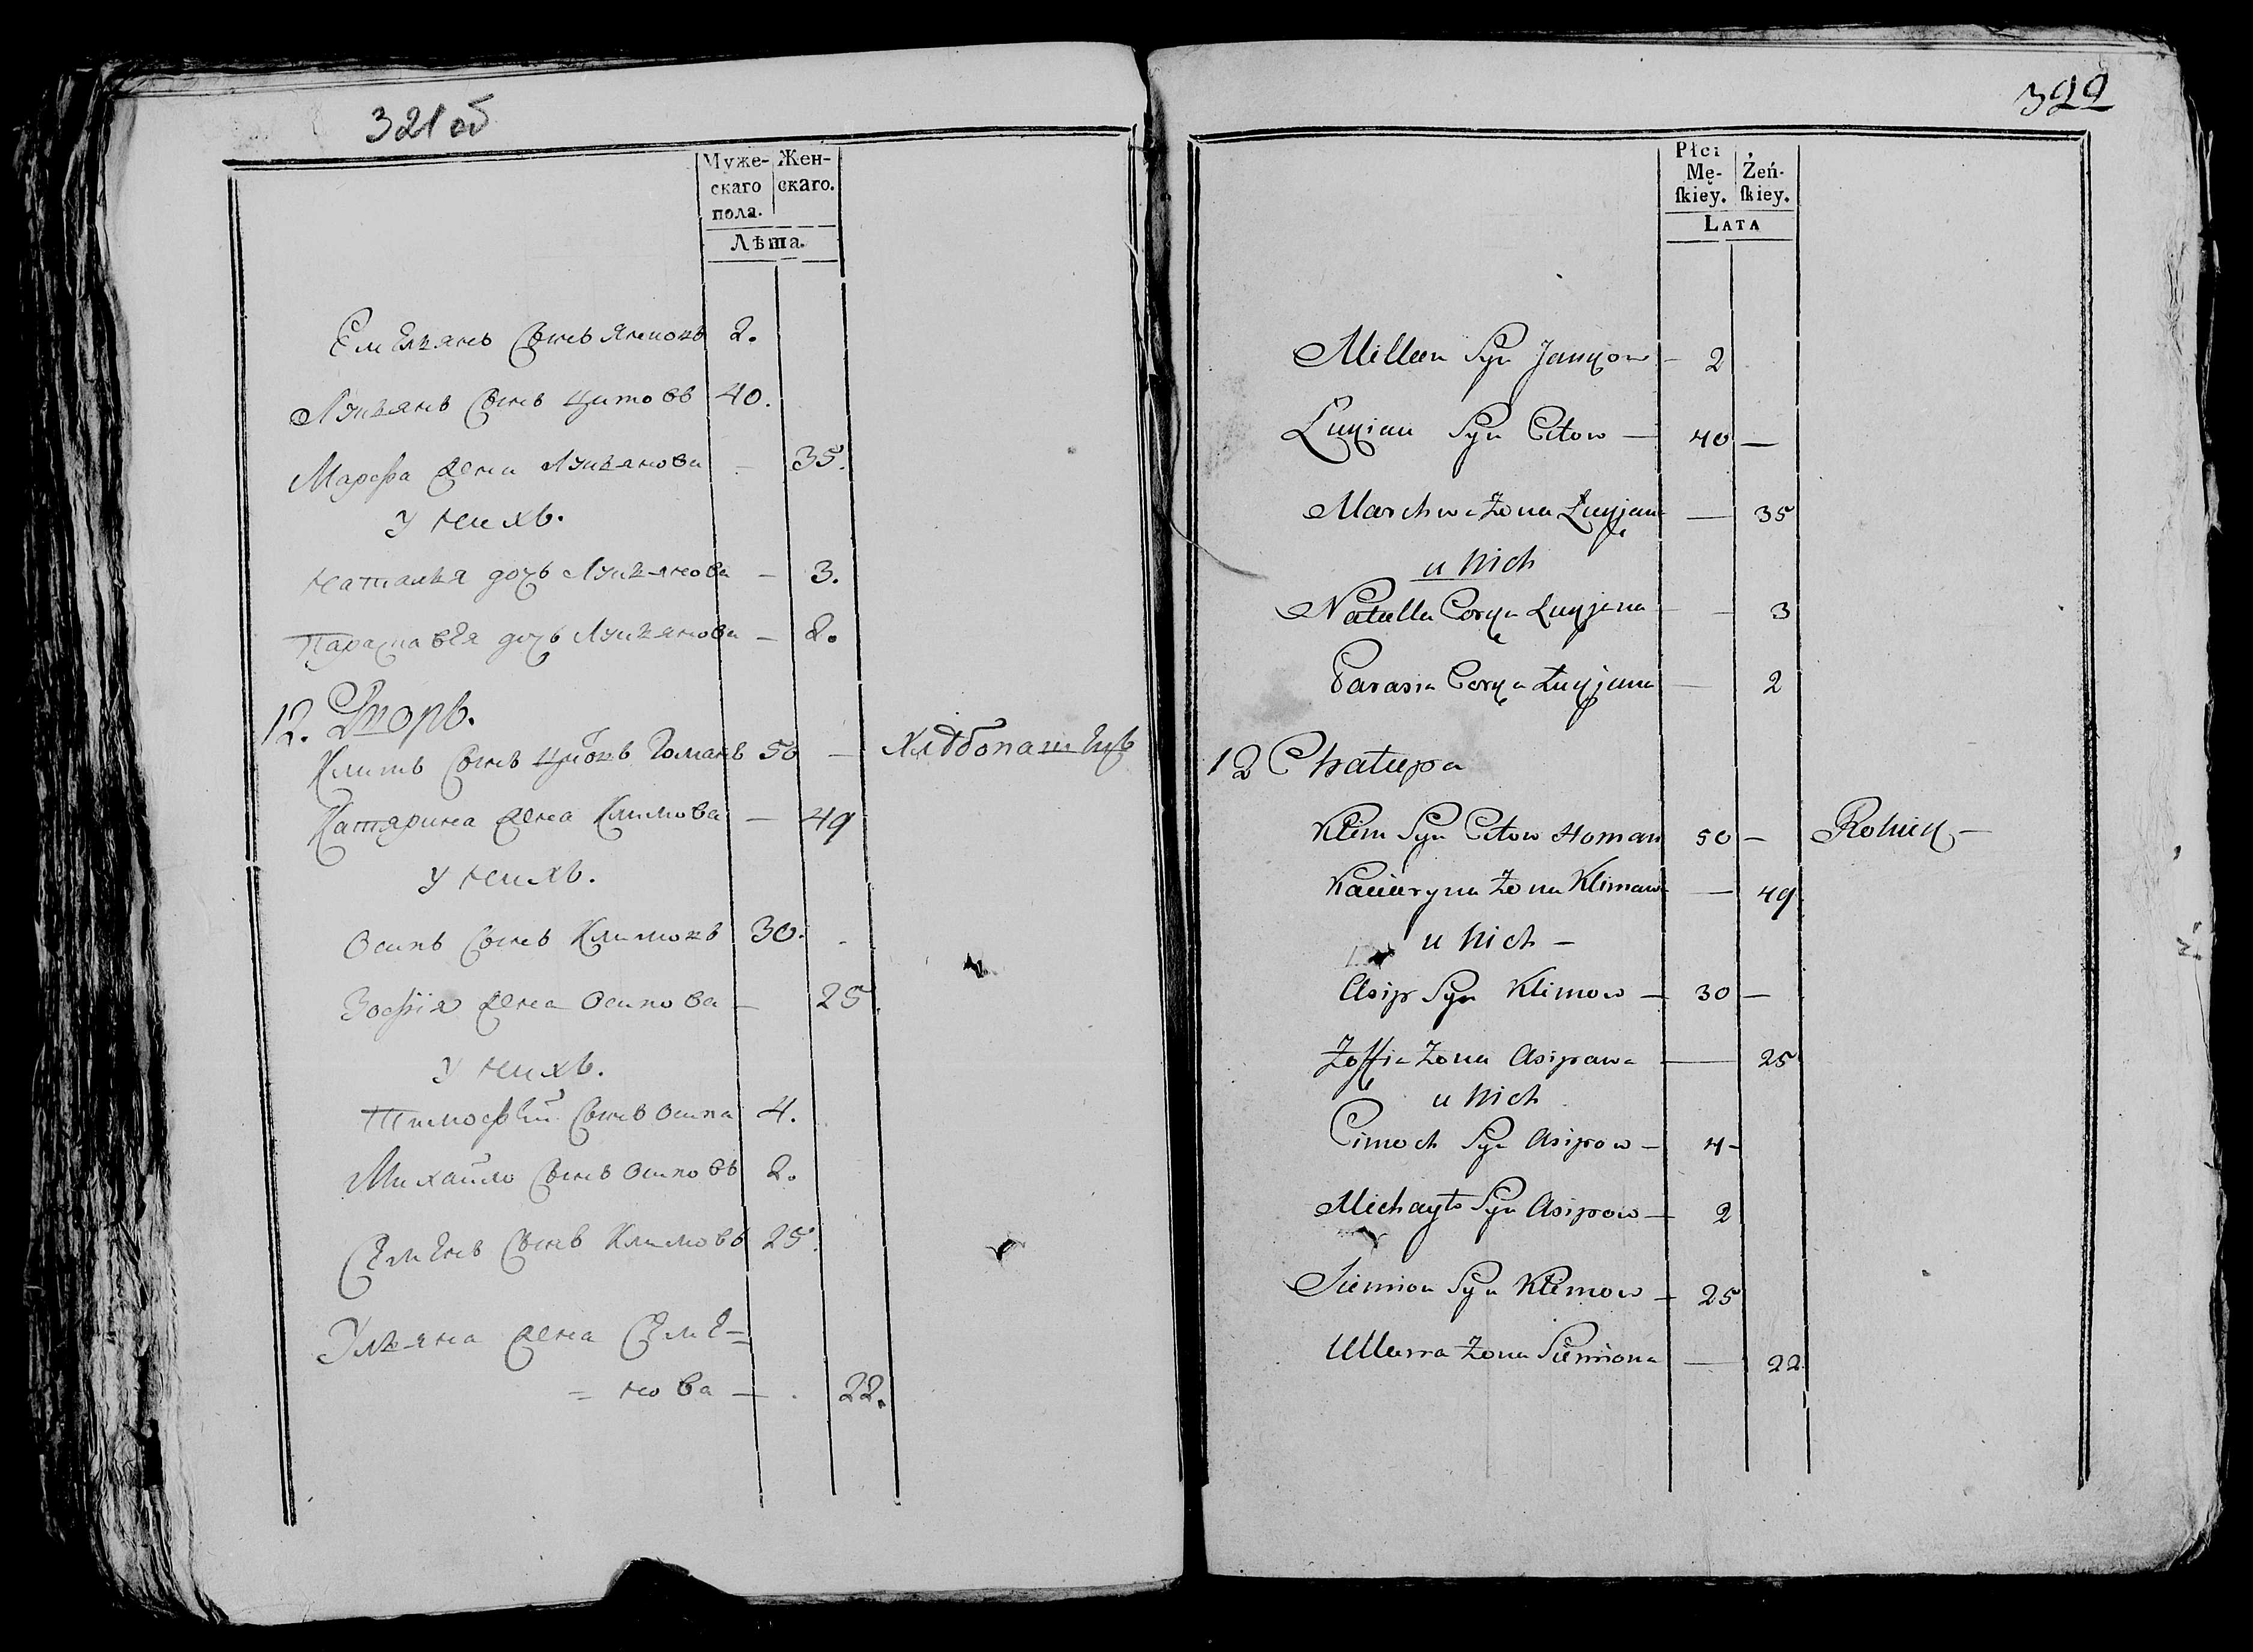 321 об
Муже- Жен-
скаго скаго.
пола.
Лѣта.
Емельянъ сынъ Янковъ 2.
Лукьянъ сынъ Цитовъ 40.
Марефа жена Лукьянова — 35.
У нихъ.
Наталья дочь Лукьянова — 3.
Парасковея дочь Лукьянова — 2.
12. Дворъ.
Климъ сынъ Цитовъ Гоманъ 50 — Хлѣбопашецъ
Катярина жена Климова — 49
У нихъ.
Осипъ сынъ Климовъ 30.
Зофія жена Осипова — 25
У нихъ.
Тимофей сынъ Осипа 4.
Михайло сынъ Осиповъ 2.
Семенъ сынъ Климовъ 25.
Ульяна жена Семе=
= нова — 22.
322
Płci
Mę- Żeń-
skiey. skiey.
LATA
Syn Jankow — 2
Łukian Syn Citow — 40 —
Marchwa Żona Łukjana — 35
u Nich
Natalla Corka Łukjana — 3
Parasia Corka Łukjana — 2
12 Chałupa
Klim Syn Citow Homan 50 — Rolnik —
Kaciaryna Żona Klimawa — 49
u Nich —
Asip Syn Klimow — 30 —
Zoffia Żona Asipawa — 25
u Nich
Cimoch Syn Asipow — 4 —
Michayło Syn Asipow — 2
Siemion Syn Klimow — 25
Ullana Żona Siemiona — 22